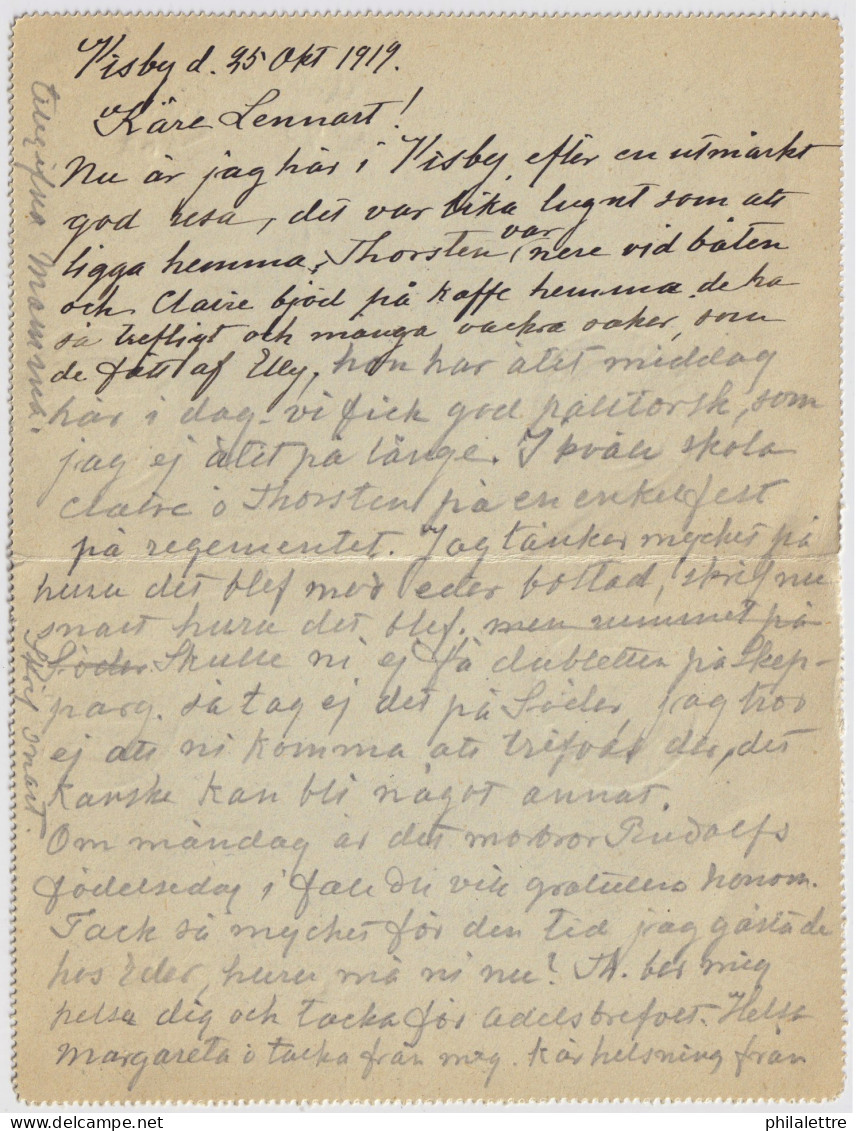 Visby d. 25 Okt 1919.
Käre Lennart!
Nu är jag här i Visby, efter en utmärkt
god resa, det var lika lugnt som att
ligga hemma, Thorsten var nere vid båten
och Claire bjöd på kaffe hemma, de ha
så trefligt och många vackra saker, som
de fått af Elly, hon har ätit middag
här i dag. vi fick god palttorsk, som
jag ej ätit på länge. I kväll skola
Claire o Thorsten på en enkel fest
på regementet. Jag tänker mycket på
huru det blef med eder bostad, skrif nu
snart huru det blef. men rummet på
Söder Skulle ni ej få dubletten på Skep-
parg. så tag ej det på Söder, jag tror
ej att ni komma att trifvas der, det
kanske kan bli något annat.
Om måndag är det morbror Rudolfs
födelsedag i fall Du vill gratulera honom.
Tack så mycket för den tid jag gästade
hos Eder, huru må ni nu? Th. ber mig
helsa dig och tacka för adelsbrefvet. Helsa
Margareta o tacka från mig. Kär helsning från
tillgifna Mamma.
Skrif snart.
philalettre